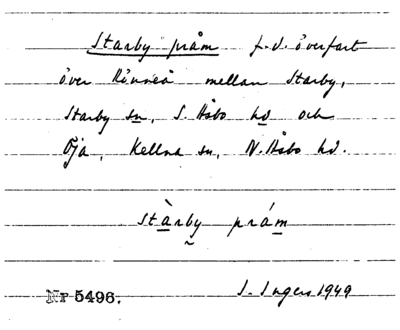 Starby pråm f.d. överfart
över Rönneå mellan Starby,
Starby sn, S. Åsbo hd och
Öja, Källna sn, N. Åsbo hd.
stàrby prám
Nr 5496. I. Ingers 1949